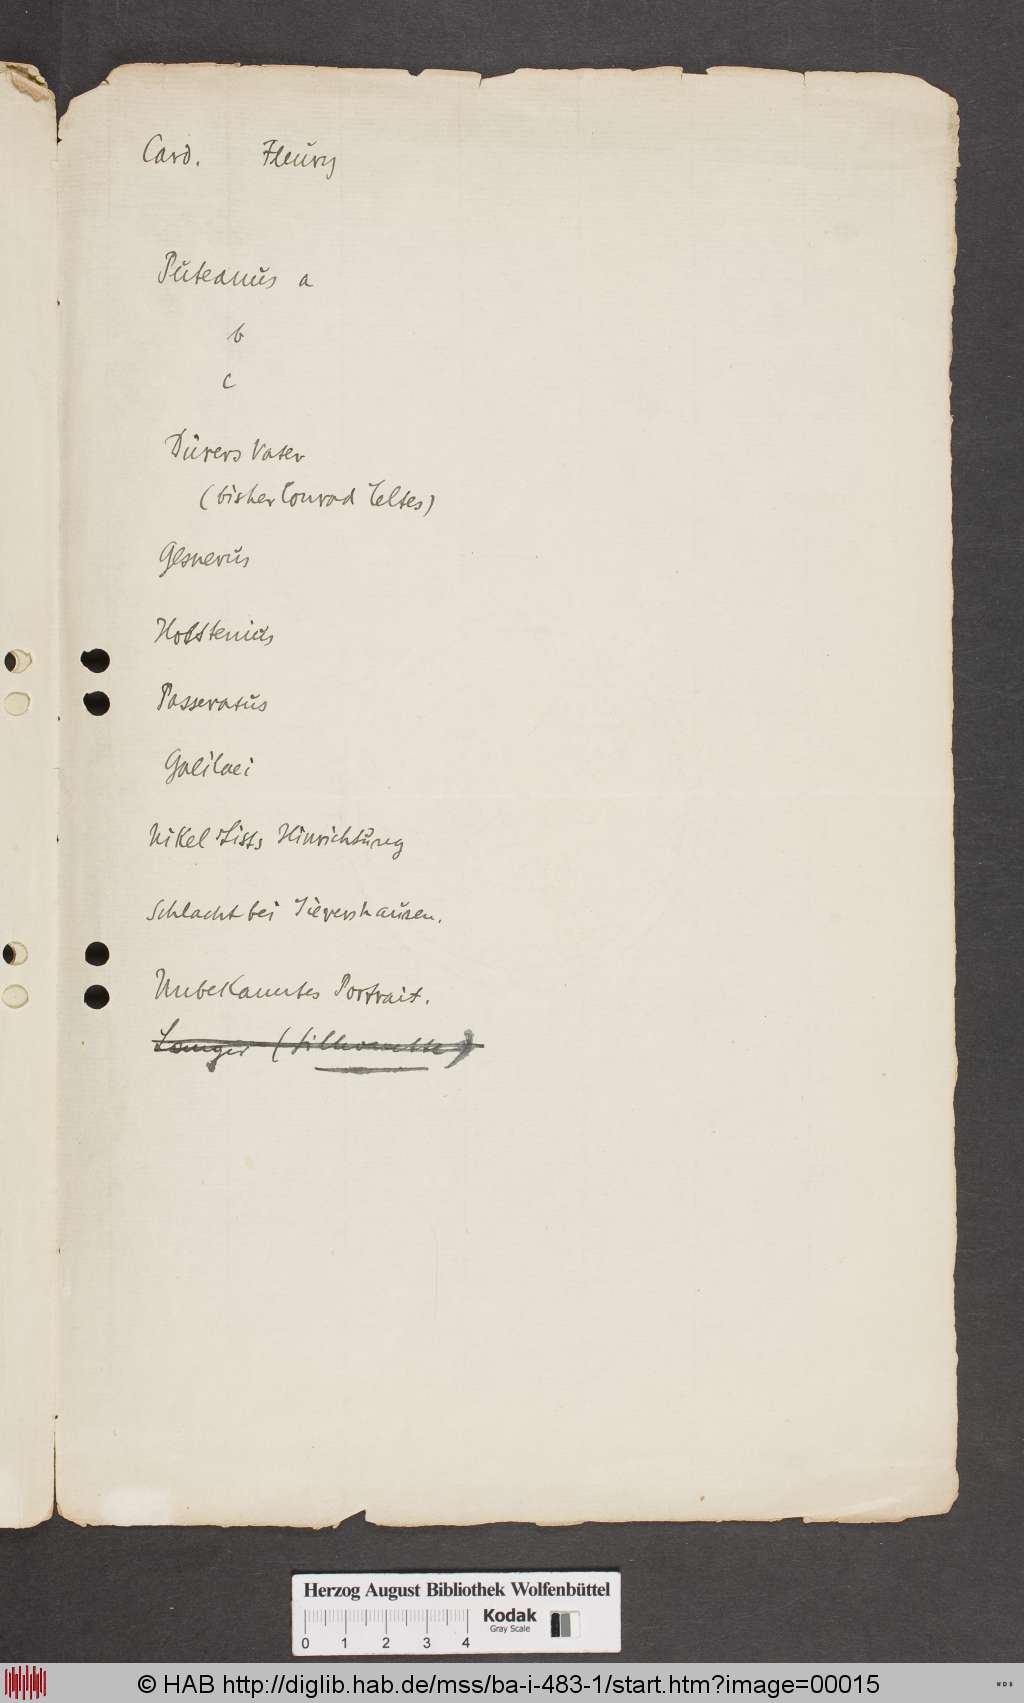 Card. Fleury
Puteanus a
b
c
Dürers Vater
(bisher Conrad Celtes)
Gesnerus
Holstenius
Passeratus
Galilaei
Nikel Lists Hinrichtung
Schlacht bei Sievershausen.
Unbekanntes Portrait.
Langer (Silhouette)
Herzog August Bibliothek Wolfenbüttel
Kodak
Gray Scale
0 1 2 3 4
© HAB http://diglib.hab.de/mss/ba-i-483-1/start.htm?image=00015